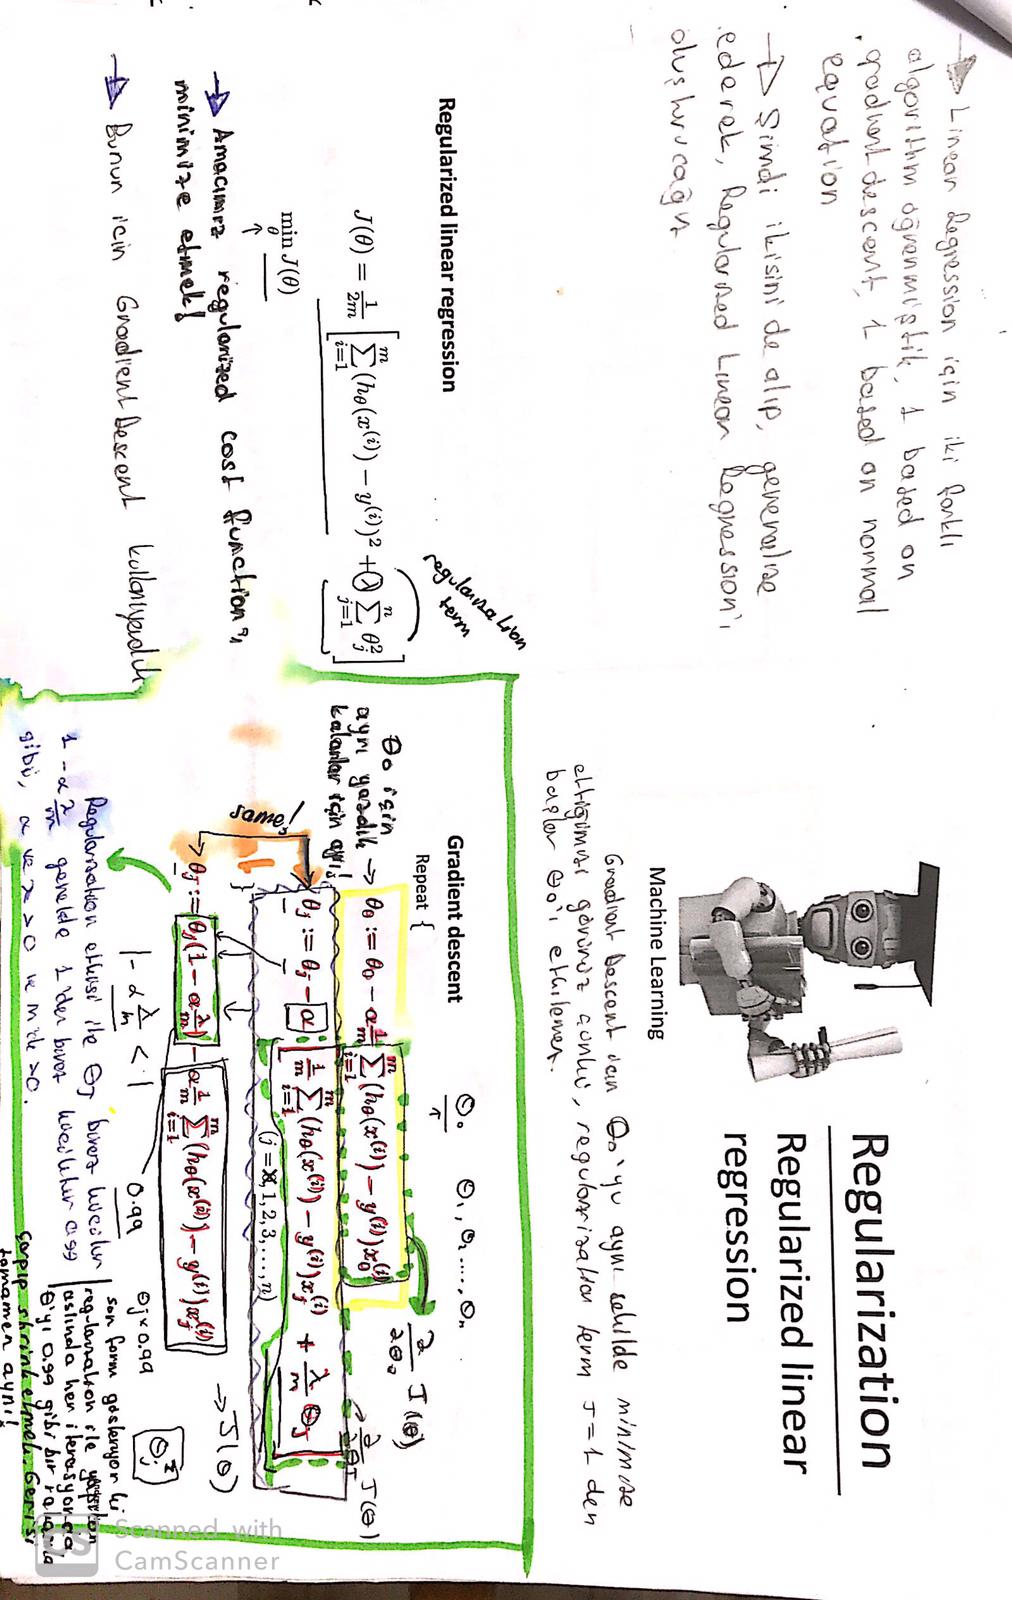 → Linear Regression için iki farklı
algorithm öğrenmiştik, 1 based on
gradient descent, 1 based on normal
equation
→ Şimdi ikisini de alıp, generalize
ederek, Regularized Linear Regression'ı
oluşturucağız
Regularization
Regularized linear
regression
Machine Learning
Gradient Descent için θ₀'yu aynı şekilde minimize
ettiğimizi görürüz çünkü, regularization term J=1 den
başlar θ₀'ı etkilemez.
Regularized linear regression
regularization
term
J(θ) = 1/2m [∑ᵢ₌₁ᵐ (hθ(x⁽ⁱ⁾) − y⁽ⁱ⁾)² + λ ∑ⱼ₌₁ⁿ θⱼ²]
min J(θ)
θ
↑
→ Amacımız regularized cost function'ı
minimize etmek!
→ Bunun için Gradient Descent kullanıyorduk
Gradient descent
θ₀ θ₁, θ₂ ...., θₙ
↑
Repeat {
θ₀ için
ayrı yazdık →
kalanlar için ayrı!
θ₀ := θ₀ − α 1/m ∑ᵢ₌₁ᵐ (hθ(x⁽ⁱ⁾) − y⁽ⁱ⁾)x₀⁽ⁱ⁾
∂/∂θ₀ J(θ)
∂/∂θJ J(θ)
θⱼ := θⱼ − α [1/m ∑ᵢ₌₁ᵐ (hθ(x⁽ⁱ⁾) − y⁽ⁱ⁾)xⱼ⁽ⁱ⁾ + λ/m θJ]
(j = 1, 2, 3, . . . , n)
}
same!
→ J(θ)
θJ := θⱼ(1 − α λ/m) − α 1/m ∑ᵢ₌₁ᵐ (hθ(x⁽ⁱ⁾) − y⁽ⁱ⁾)xⱼ⁽ⁱ⁾
1 − α λ/m < 1
0.99
θj × 0.99
θⱼ²
Regularization etkisi ile θJ biraz küçülür
1 − α λ/m genelde 1'den biraz küçüktür 0.99
gibi, α ve λ > 0 ve m'de >0.
son form gösteriyor ki
regularization ile yapılan
aslında her iterasyonda,
θ'yı 0.99 gibi bir rakamla
çarpıp shrink etmek. Gerisi
tamamen aynı!
Scanned with
CamScanner
CS